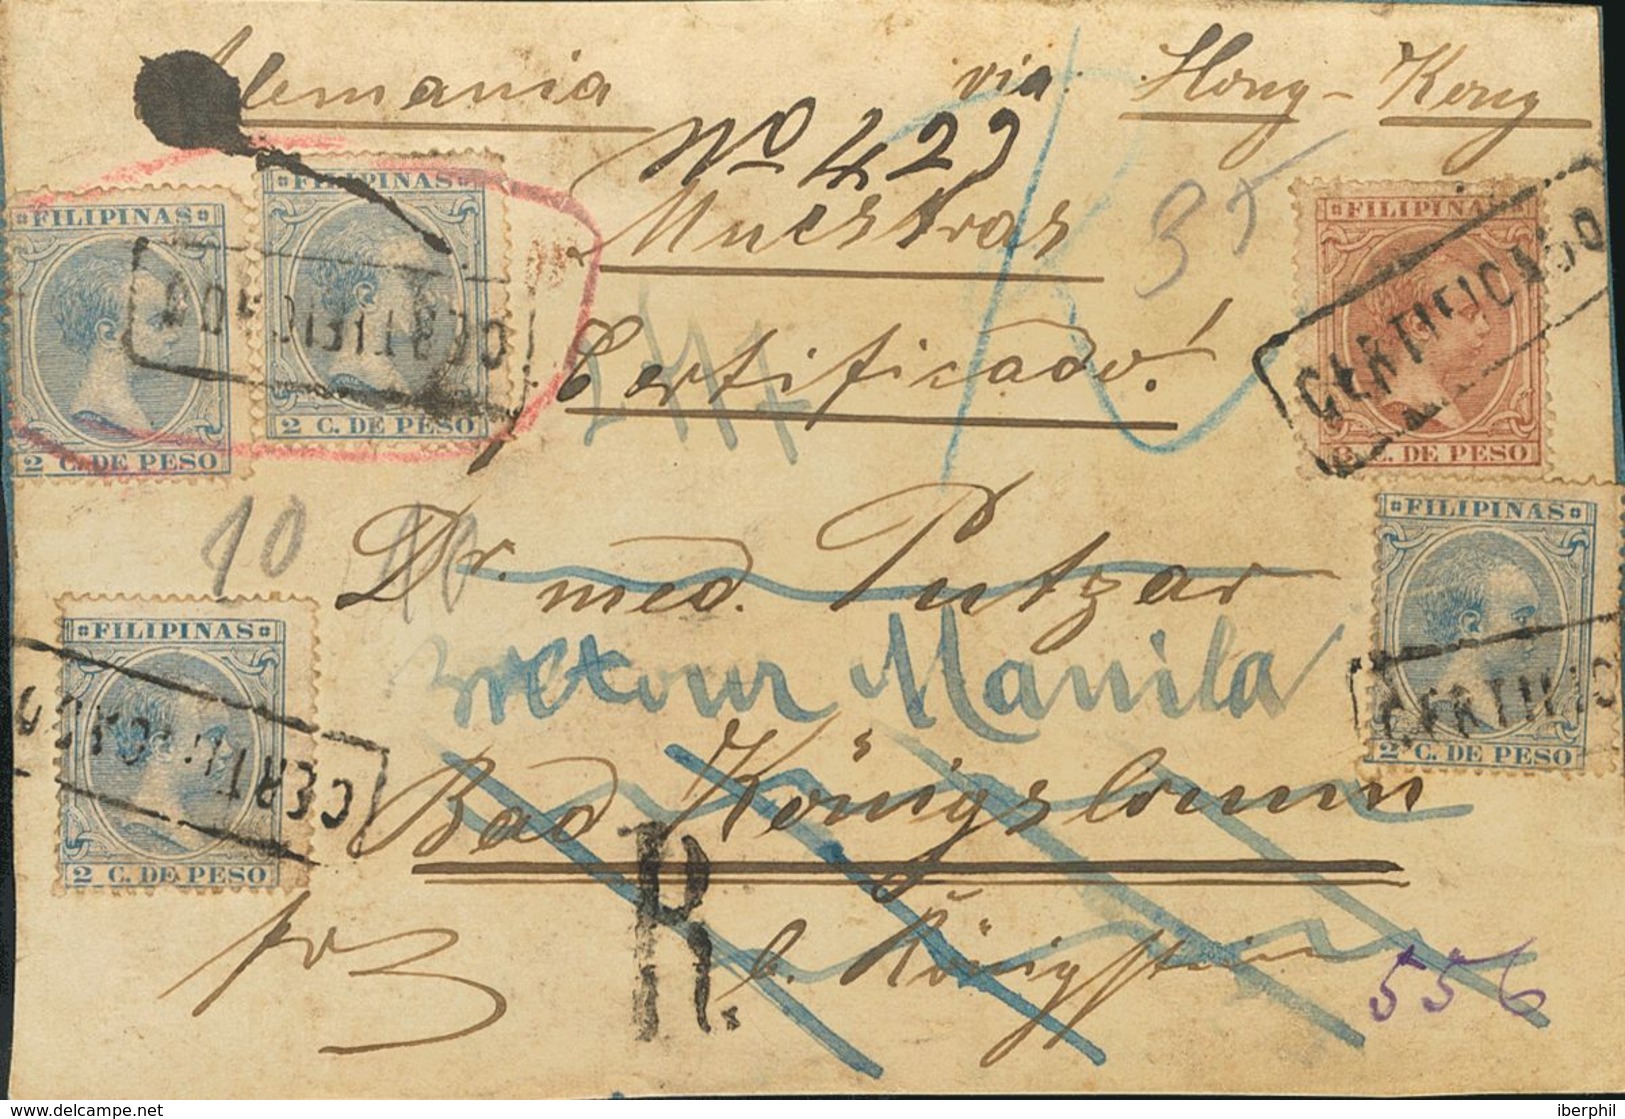 Alemania via Hong-Kong
No 429
Muestras
35
Certificado!
FILIPINAS
2 C. DE PESO
CERTIFICADO
FILIPINAS
2 C. DE PESO
FILIPINAS
8 C. DE PESO
CERTIFICADO
10 10
Dr. med. Putzar
retour Manila
Bad Königsbrunn
b. Königstein
FILIPINAS
2 C. DE PESO
CERTIFICADO
FILIPINAS
2 C. DE PESO
R.
556
delcampe.net
iberphil